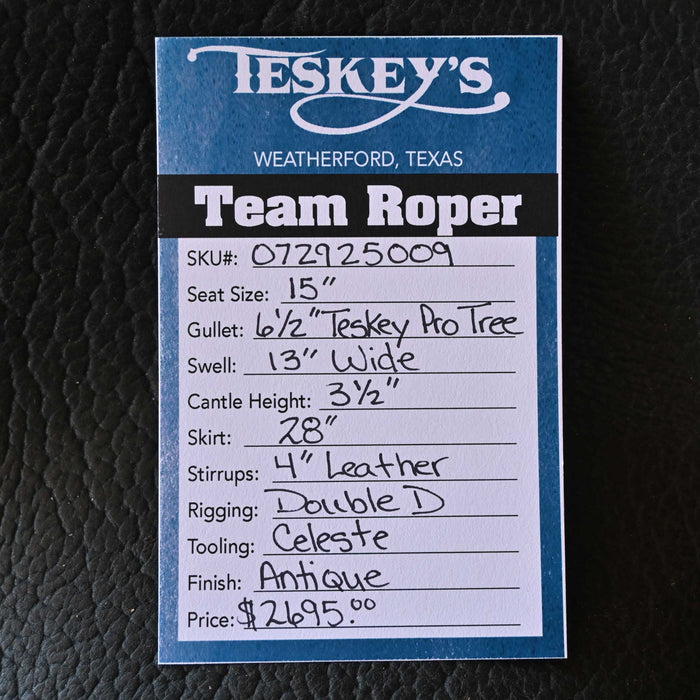 TESKEY'S
WEATHERFORD, TEXAS
Team Roper
SKU#: 072925009
Seat Size: 15"
Gullet: 6½" Teskey Pro Tree
Swell: 13" Wide
Cantle Height: 3½"
Skirt: 28"
Stirrups: 4" Leather
Rigging: Double D
Tooling: Celeste
Finish: Antique
Price: $2695.00